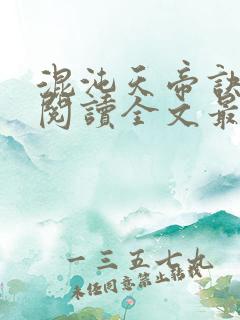 混沌天帝訣
閱讀全文最
一三五七九
未經同意禁止轉載